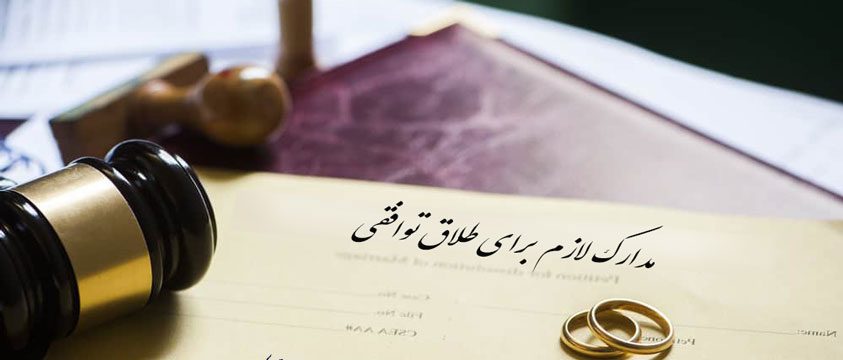 مدارک لازم برای طلاق توافقی
Petition for dissolution of Marriage
Case No.
File No.
CSEA AA#
Name: